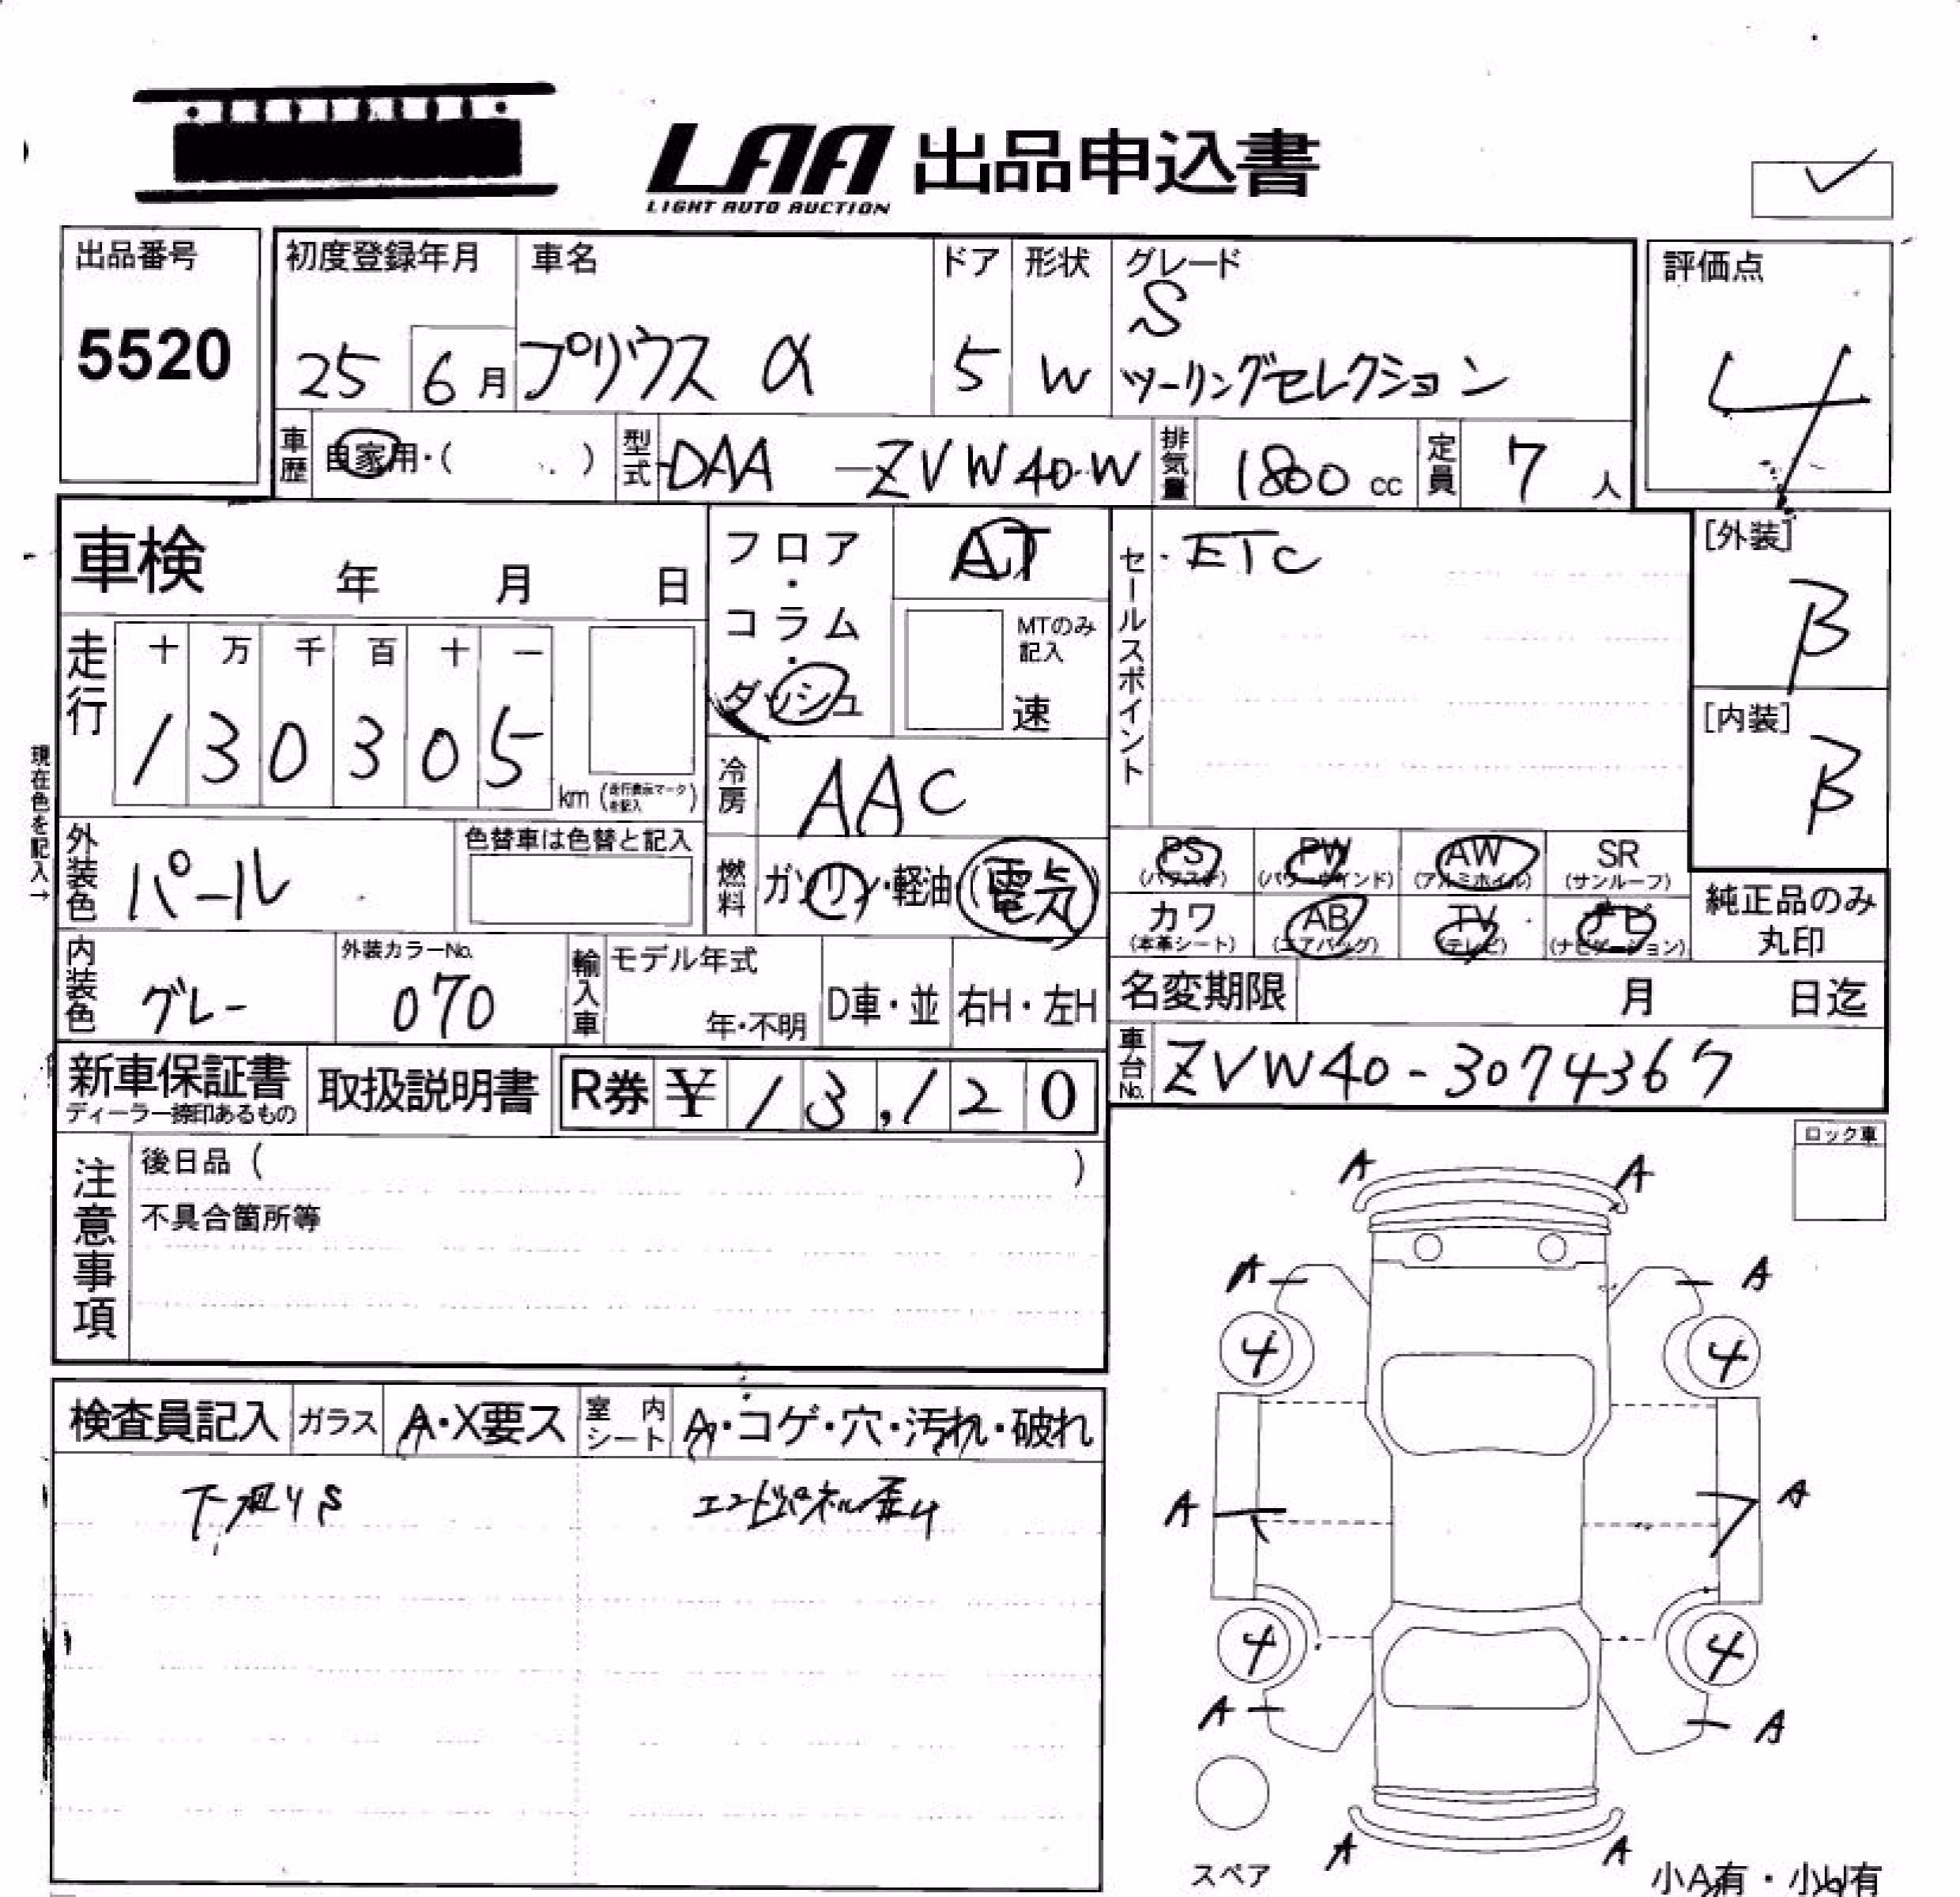 LAA 出品申込書
LIGHT AUTO AUCTION
出品番号
5520
初度登録年月
25 6月
車名
プリウス α
ドア
5
形状
W
グレード
S
ツーリングセレクション
評価点
4
車歴
自家用・( )
型式
DAA -ZVW40W
排気量
1800 cc
定員
7 人
車検 年 月 日
フロア・コラム・ダッシュ
AT
MTのみ記入
速
セールスポイント
・ETC
[外装]
B
[内装]
B
走行
十 万 千 百 十 一
1 3 0 3 0 5
km (走行表示マークを記入)
現在色を記入→
冷房
AAC
外装色
パール
色替車は色替と記入
燃料
ガソリン・軽油・(電気)
PS (パワステ)
PW (パワーウインド)
AW (アルミホイル)
SR (サンルーフ)
カワ (本革シート)
AB (エアバッグ)
TV (テレビ)
ナビ (ナビゲーション)
純正品のみ丸印
内装色
グレー
外装カラーNo.
070
輸入車
モデル年式
年・不明
D車・並
右H・左H
名変期限 月 日迄
車台No.
ZVW40-3074367
新車保証書
ディーラー捺印あるもの
取扱説明書
R券 ¥ 13,120
注意事項
後日品 ( )
不具合箇所等
ロック車
検査員記入
ガラス
A・X要ス
室内シート
A・コゲ・穴・汚れ・破れ
下廻りS
エンドパネル歪み
A A
A A
4 4
A A
4 4
A A
A A
スペア
小A有・小U有